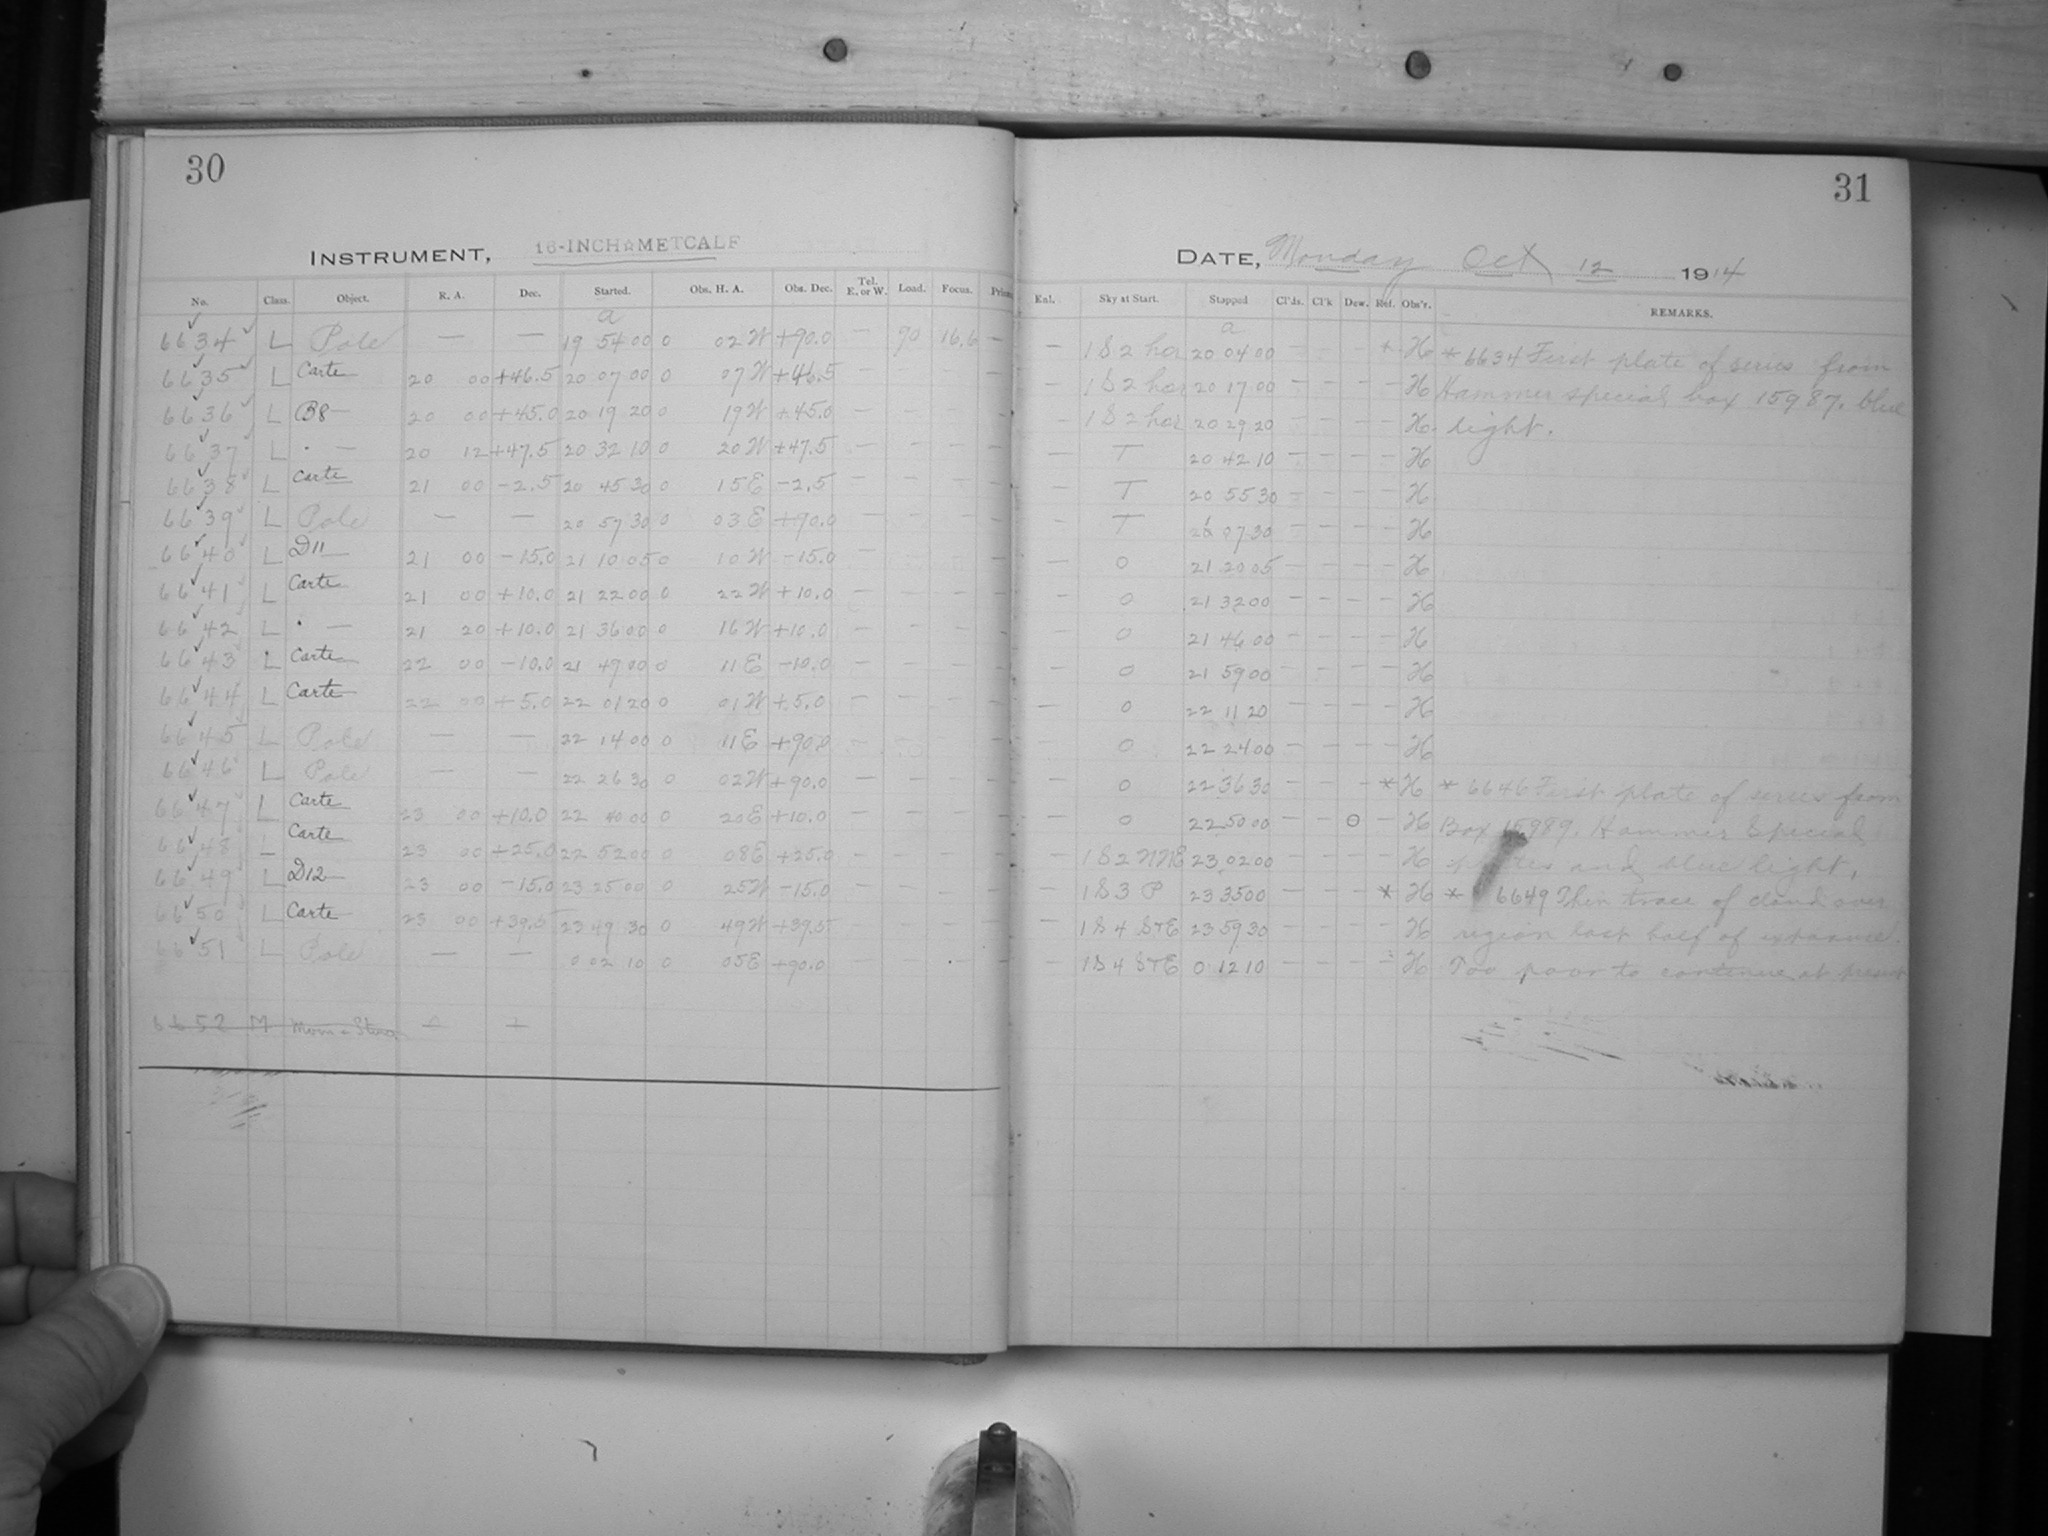 30
INSTRUMENT, 16-INCH☆METCALF
No. Class. Object. R. A. Dec. Started. Obs. H. A. Obs. Dec. Tel. E. or W. Load. Focus.
a
6634 L Pole — — 19 54 00 0 02 W +90.0 — 90 16.6 —
6635 L Carte 20 00 +46.5 20 07 00 0 07 W +46.5 — — — —
6636 L B8 20 00 +45.0 20 19 20 0 19 W +45.0 — — — —
6637 L · — 20 12 +47.5 20 32 10 0 20 W +47.5 — — — —
6638 L Carte 21 00 −2.5 20 45 30 0 15 E −2.5 — — — —
6639 L Pole — — 20 57 30 0 03 E +90.0 — — — —
6640 L D11 21 00 −15.0 21 10 05 0 10 W −15.0 — — — —
6641 L Carte 21 00 +10.0 21 22 00 0 22 W +10.0 — — — —
6642 L · — 21 20 +10.0 21 36 00 0 16 W +10.0 — — — —
6643 L Carte 22 00 −10.0 21 49 00 0 11 E −10.0 — — — —
6644 L Carte 22 00 +5.0 22 01 20 0 01 W +5.0 — — — —
6645 L Pole — — 22 14 00 0 11 E +90.0 — — — —
6646 L Pole — — 22 26 30 0 02 W +90.0 — — — —
6647 L Carte 23 00 +10.0 22 40 00 0 20 E +10.0 — — — —
6648 L Carte 23 00 +25.0 22 52 00 0 08 E +25.0 — — — —
6649 L D12 23 00 −15.0 23 25 00 0 25 W −15.0 — — — —
6650 L Carte 23 00 +39.5 23 49 30 0 49 W +39.5 — — — —
6651 L Pole — — 0 02 10 0 05 E +90.0 — — — —
6652 M Moon
31
DATE, Monday Oct 12 1914
Sky at Start. Stopped Cl'ds. Cl'k Dew. Ref. Obs'r. REMARKS.
a
— 1 S 2 hor 20 04 00 — — — * H * 6634 First plate of series from
— 1 S 2 hor 20 17 00 — — — — H Hammer special box 15987. blue
— 1 S 2 hor 20 29 20 — — — — H light.
— T 20 42 10 — — — — H
— T 20 55 30 — — — — H
— T 21 07 30 — — — — H
— 0 21 20 05 — — — — H
— 0 21 32 00 — — — — H
— 0 21 46 00 — — — — H
— 0 21 59 00 — — — — H
— 0 22 11 20 — — — — H
— 0 22 24 00 — — — — H
— 0 22 36 30 — — — * H * 6646 First plate of series from
— 0 22 50 00 — — 0 — H Box 15989. Hammer Special
— 1 S 2 NNE 23 02 00 — — — — H plates and blue light.
— 1 S 3 P 23 35 00 — — — * H * 6649 Then trace of cloud over
— 1 S 4 S+E 23 59 30 — — — — H region last half of exposure.
— 1 S 4 S+E 0 12 10 — — — — H Too poor to continue at present